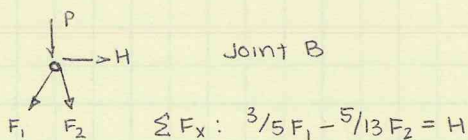 P
H
Joint B
F₁ F₂
ΣFx: 3/5 F₁ - 5/13 F₂ = H